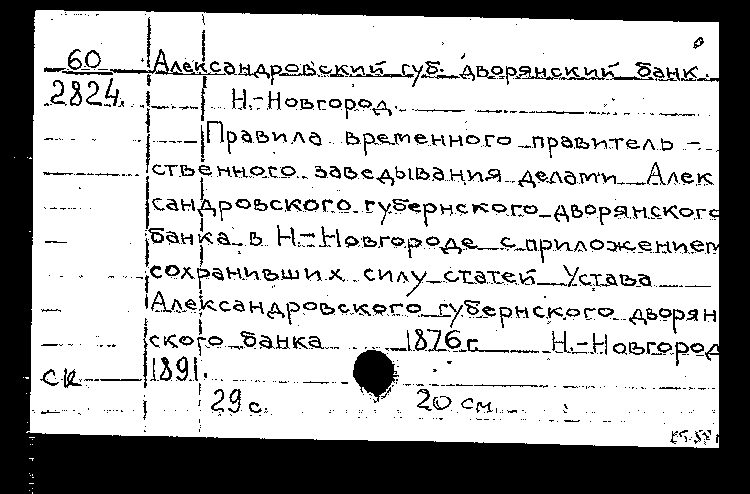 60 Александровский губ. дворянский банк.
2824. Н.-Новгород.
Правила временного правитель-
ственного заведывания делами Алек
сандровского губернского дворянског
банка в Н-Новгороде с приложением
сохранивших силу статей Устава
Александровского губернского дворян
ского банка 1876 г. Н.-Новгород
ск 1891.
29 с. 20 см